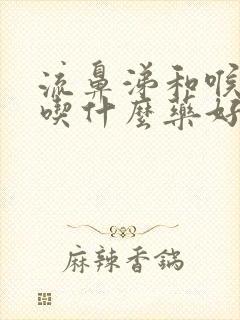 流鼻涕和喉
喫什麼藥好
麻辣香鍋